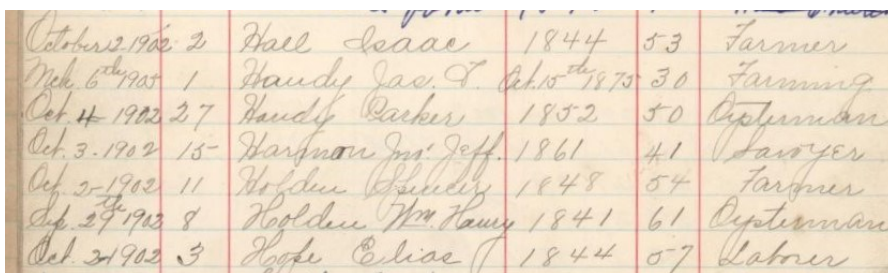 October 2-1902 2 Hall Isaac 1844 53 Farmer
Mch 6th 1905 1 Handy Jas. T. Oct. 15th 1875 30 Farming
Oct. 4- 1902 27 Handy Parker 1852 50 Oysterman
Oct. 3- 1902 15 Harmon Jno. Jeff. 1861 41 Sawyer
Oct. 2-1902 11 Holden Spencer 1848 54 Farmer
Sep. 29th 1902 8 Holden Wm. Henry 1841 61 Oysterman
Oct. 2-1902 3 Hope Elias 1844 57 Laborer